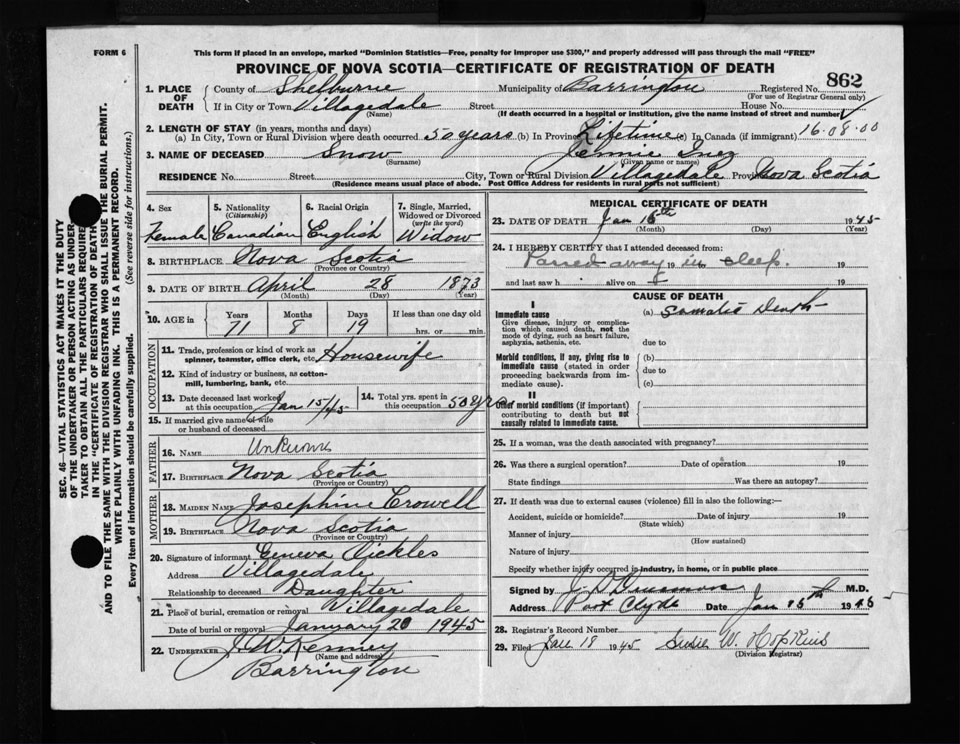 FORM 6
This form if placed in an envelope, marked "Dominion Statistics—Free, penalty for improper use $300," and properly addressed will pass through the mail "FREE"
PROVINCE OF NOVA SCOTIA—CERTIFICATE OF REGISTRATION OF DEATH
862
1. PLACE OF DEATH County of Shelburne Municipality of Barrington Registered No.
(For use of Registrar General only)
If in City or Town Villagedale Street House No.
(Name) (If death occurred in a hospital or institution, give the name instead of street and number)
2. LENGTH OF STAY (in years, months and days)
(a) In City, Town or Rural Division where death occurred 50 years (b) In Province Lifetime (c) In Canada (if immigrant) 16.08.00
3. NAME OF DECEASED Snow Jennie Inez
(Surname) (Given name or names)
RESIDENCE No. Street City, Town or Rural Division Villagedale Prov. Nova Scotia
(Residence means usual place of abode. Post Office Address for residents in rural parts not sufficient)
4. Sex Female
5. Nationality (Citizenship) Canadian
6. Racial Origin English
7. Single, Married, Widowed or Divorced (write the word) Widow
8. BIRTHPLACE Nova Scotia
(Province or Country)
9. DATE OF BIRTH April 28 1873
(Month) (Day) (Year)
10. AGE in Years Months Days If less than one day old
71 8 19 hrs. or min.
OCCUPATION
11. Trade, profession or kind of work as spinner, teamster, office clerk, etc. Housewife
12. Kind of industry or business, as cotton-mill, lumbering, bank, etc.
13. Date deceased last worked at this occupation Jan 15/45
14. Total yrs. spent in this occupation 50 yrs
15. If married give name of wife or husband of deceased
FATHER
16. NAME Unknown
17. BIRTHPLACE Nova Scotia
(Province or Country)
MOTHER
18. MAIDEN NAME Josephine Crowell
19. BIRTHPLACE Nova Scotia
(Province or Country)
20. Signature of informant Geneva Nickles
Address Villagedale
Relationship to deceased Daughter
21. Place of burial, cremation or removal Villagedale
Date of burial or removal January 20 1945
22. UNDERTAKER J W Kenney
(Name and address)
Barrington
MEDICAL CERTIFICATE OF DEATH
23. DATE OF DEATH Jan 16th 1945
(Month) (Day) (Year)
24. I HEREBY CERTIFY that I attended deceased from:
Passed away 19 in sleep. 19
and last saw h alive on 19
CAUSE OF DEATH
I
Immediate cause
Give disease, injury or complication which caused death, not the mode of dying, such as heart failure, asphyxia, asthenia, etc.
(a) Somatic Death
due to
Morbid conditions, if any, giving rise to immediate cause (stated in order proceeding backwards from immediate cause).
(b)
due to
(c)
II
Other morbid conditions (if important) contributing to death but not causally related to immediate cause.
25. If a woman, was the death associated with pregnancy?
26. Was there a surgical operation? Date of operation 19
State findings Was there an autopsy?
27. If death was due to external causes (violence) fill in also the following:—
Accident, suicide or homicide? Date of injury 19
(State which)
Manner of injury
(How sustained)
Nature of injury
Specify whether injury occurred in industry, in home, or in public place
Signed by M.D.
Address Port Clyde Date Jan 15th 1945
28. Registrar's Record Number
29. Filed Jan 18 1945 Susie W. Hopkins
(Division Registrar)
SEC. 46—VITAL STATISTICS ACT MAKES IT THE DUTY
OF THE UNDERTAKER OR PERSON ACTING AS UNDER-
TAKER TO OBTAIN ALL THE PARTICULARS REQUIRED
IN THE "CERTIFICATE OF REGISTRATION OF DEATH"
AND TO FILE THE SAME WITH THE DIVISION REGISTRAR WHO SHALL ISSUE THE BURIAL PERMIT.
WRITE PLAINLY WITH UNFADING INK. THIS IS A PERMANENT RECORD.
Every item of information should be carefully supplied. (See reverse side for instructions.)